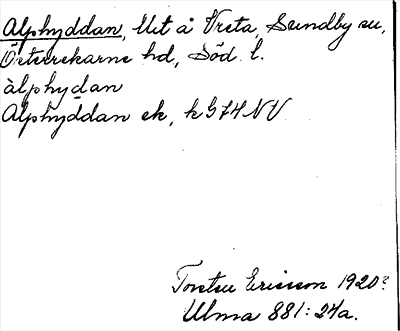 Alphyddan, Utt å Vreta, Sundby sn,
Österrekarne hd, Söd. l.
àlphydan
Alphyddan ek, k G74NV
Torsten Ericsson 1920?
Ulma 881:24a.